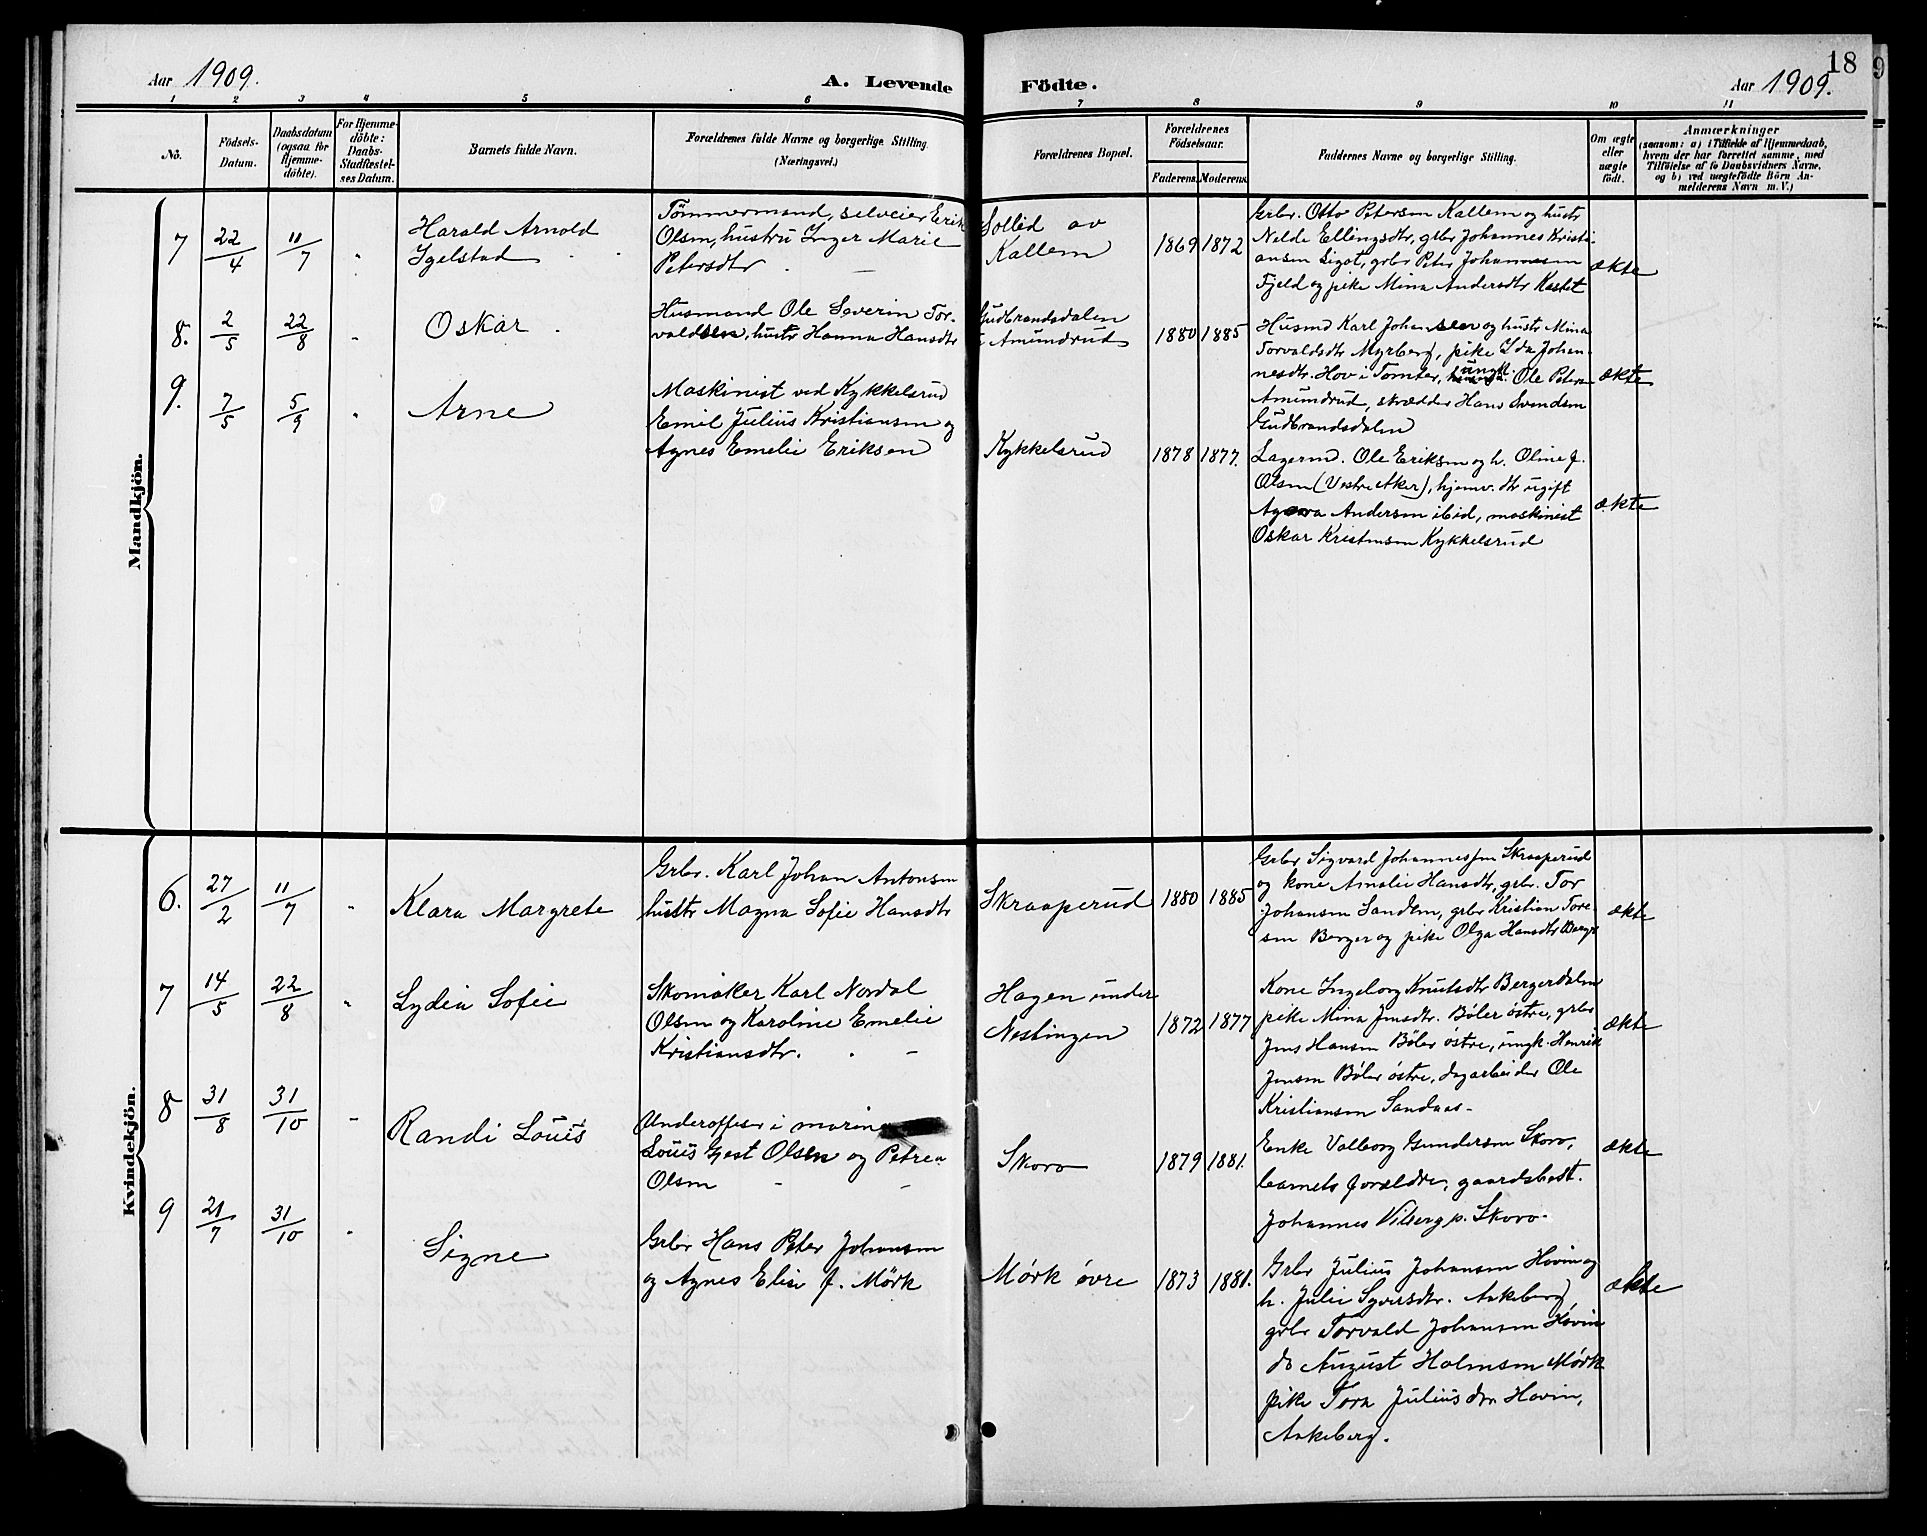 18
Aar 1909.
A. Levende Födte.
Aar 1909.
1 2 3 4 5 6 7 8 9 10 11
No.
Födsels-
Datum.
Daabsdatum
(ogsaa for
Hjemme-
döbte).
For Hjemme-
döbte:
Daabs-
Stadfæstel-
ses Datum.
Barnets fulde Navn.
Forældrenes fulde Navne og borgerlige Stilling.
(Næringsvei.)
Forældrenes Bopæl.
Forældrenes
Födselsaar.
Faderens. Moderens.
Faddernes Navne og borgerlige Stilling.
Om ægte
eller
uægte
födt.
Anmærkninger
(saasom: a) i Tilfælde af Hjemmedaab,
hvem der har forrettet samme, med
Tilföielse af to Daabsvidners Navne,
og b) ved uægtefödte Börn An-
melderens Navn m. V.)
Mandkjön.
7 22/4 11/7 "
Harald Arnold
Igelstad
Tömmermand, selveier Erik
Olsen, hustru Inger Marie
Petersdtr
Sollid av
Kallem
1869 1872
Grbr. Otto Petersen Kallem og hustr
Nelde Ellingsdtr, grbr Johannes Kristi-
ansen Ligot, grbr Peter Johannesen
Fjeld og pike Mina Andersdtr Kastet
ækte
8. 2/5 22/8 "
Oskar
Husmand Ole Severin Tor-
valdsen, hustr Hanna Hansdtr
Gudbrandsdalen
i Amundrud
1880 1885
Husmd Karl Johansen og hustr Mina
Torvaldsdtr Myrberg, pike Ida Johan-
nesdtr. Hov i Tomter, ungk. Ole Petersen
Amundrud, skrædder Hans Svendsen
Gudbrandsdalen
ækte
9. 7/5 5/9 "
Arne
Maskinist ved Kykkelsrud
Emil Julius Kristiansen og
Agnes Emelie Eriksen
Kykkelsrud
1878 1877.
Lagermd. Ole Eriksen og h. Oline f.
Olsen (Vestre Aker), hjemv. dtr ugift
Agnora Andersen ibid, maskinist
Oskar Kristensen Kykkelsrud
ækte
Kvindekjön.
6. 27/2 11/7 "
Klara Margrete
Grbr. Karl Johan Antonsen
hustr Magna Sofie Hansdtr
Skraaperud
1880 1885
Grbr Sigvard Johannessen Skraaperud
og kone Amalie Hansdtr, grbr. Tor
Johansen Sandem, grbr Kristian Tore-
sen Berger og pike Olga Hansdtr Berger
ækte
7 14/5 22/8 "
Lydia Sofie
Skomaker Karl Nordal
Olsen og Karoline Emelie
Kristiansdtr.
Hagen under
Nestingen
1872 1877
Kone Ingeborg Knutsdtr Bergerdalen
pike Mina Jensdtr. Böler östre, grbr
Jens Hansen Böler östre, ungk. Henrik
Jensen Böler östre, dagarbeider Ole
Kristiansen Sandaas-
ækte
8 31/8 31/10 "
Randi Louis
Underofficer i marinen
Louis Gest Olsen og Petrea
Olsen
Skoro
1879 1881.
Enke Valborg Gundersen Skoro,
barnets forældre, gaardsbest.
Johannes Vilberg p. Skoro-
ækte
9 21/7 31/10 "
Signe
Grbr Hans Peter Johansen
og Agnes Elise f. Mörk
Mörk övre
1873 1881.
Grbr Julius Johansen Hovin og
h. Julie Syversdtr. Askeberg
grbr Torvald Johansen Hovin
do August Holmsen Mörk
pike Tora Juliusdtr Hovin,
Askeberg.
ækte